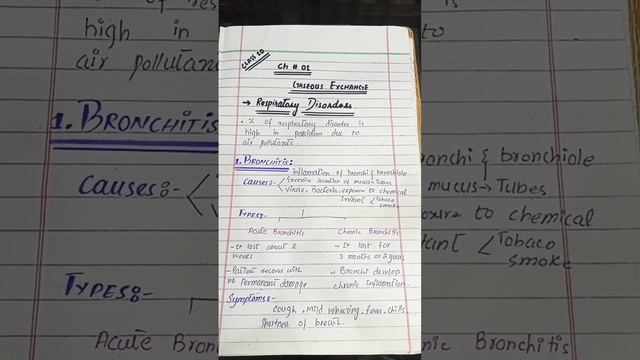 CLASS 10
Ch # 01
GASEOUS EXCHANGE
→ Respiratory Disorders
• % of respiratory disorder is
high in pakistan due to
air pollutants.
1. BRONCHITIS:
Inflamation of bronchi & bronchiole
CAUSES:- Excessive secretion of mucus → Tubes
Viruse, Bacteria, exposure to chemical
irritant < Tobaco
smoke
TYPES:-
Acute Bronchitis
- It last about 2
weeks
- Patient recover with
no Permanant damage
Chronic Bronchitis
→ It last for
3 months or 2 years
- Bronchi develop
chronic inflamation.
Symptoms:-
cough, Mild wheezing, fever, chills,
shortness of breath.
high in
air pollutants
1. BRONCHITIS
CAUSES:-
TYPES:-
Acute Bron
is
to
bronchi & bronchiole
mucus → Tubes
posure to chemical
tant < Tobaco
smoke
nic Bronchitis